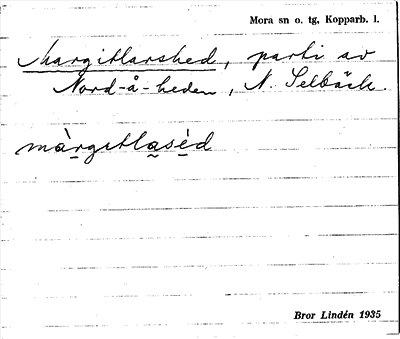 Mora sn o. tg, Kopparb. l.
Margitlarshed, parti av
Nord-å-heden, N. Selbäck.
màrgɪtlasèd
Bror Lindén 1935